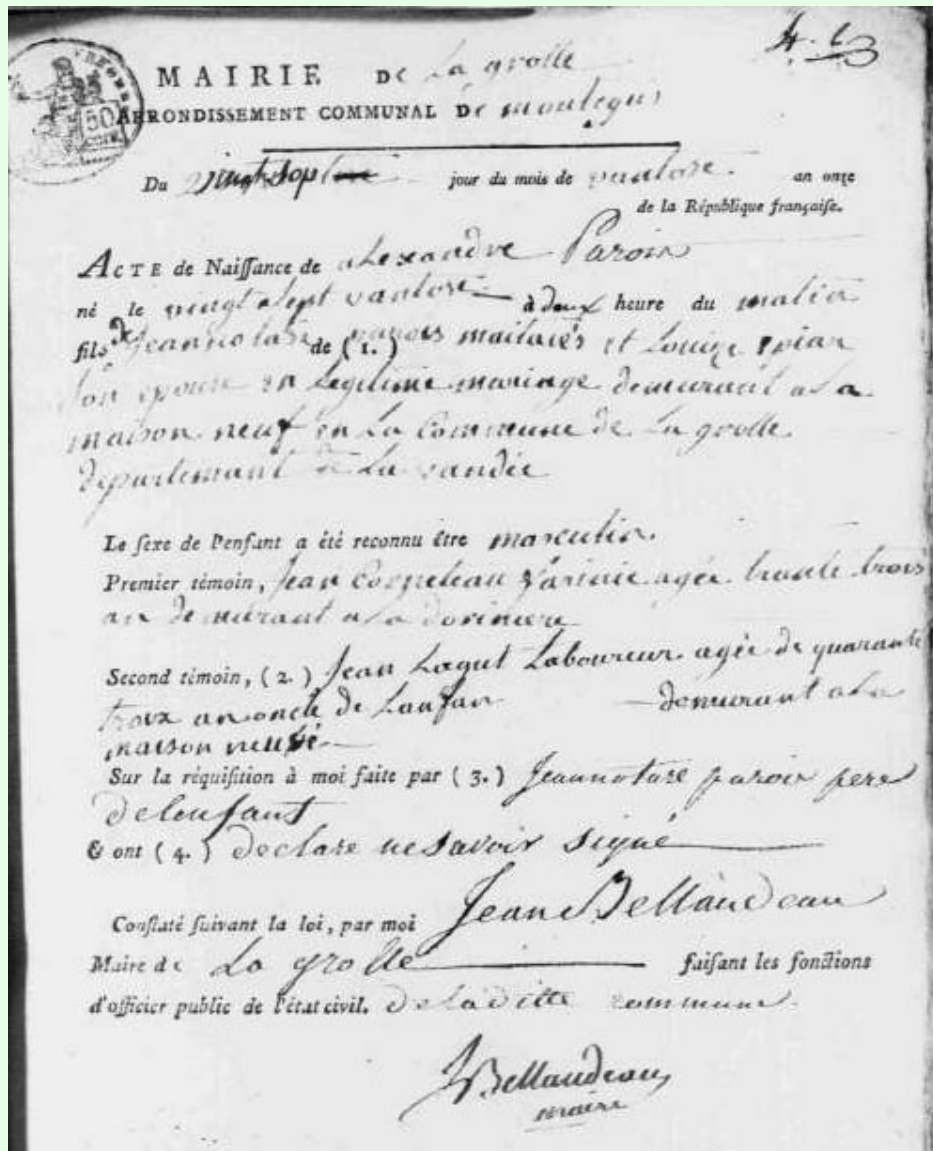 4. 6
MAIRIE De La grolle
ARRONDISSEMENT COMMUNAL De montegu
50
Du vingt sept jour du mois de vantose an onze
de la République française.
ACTE de Naissance de alexandre Parois
né le vingt sept vantose à deux heure du matin
fils de (1.) parois et Louize
son epouse en legitime mariage demurant a la
maison neuf en La Commune de La grolle
departemant de La vandée
Le sexe de l'enfant a été reconnu être masculin.
Premier témoin, Jean agée trante trois
an demurant a la
Second témoin, (2.) Jean Laboureur agée de quarante
troix an oncle de Lanfan demurant a La
maison neuve
Sur la réquisition à moi faite par (3.) parois pere
de lenfant
& ont (4.) declare ne savoir signé
Constaté suivant la loi, par moi Jean Bellaudeau
Maire de La grolle faisant les fonctions
d'officier public de l'état civil. de la ditte commune
J Bellaudeau
maire